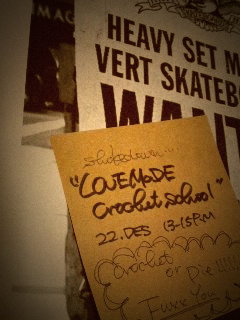 IMAG
HEAVY SET M
VERT SKATEB
WANT
"LOVEMADE
Crochet School"
22. DES 13-15PM
Crochet
or Die!!!!!
Fuxx You